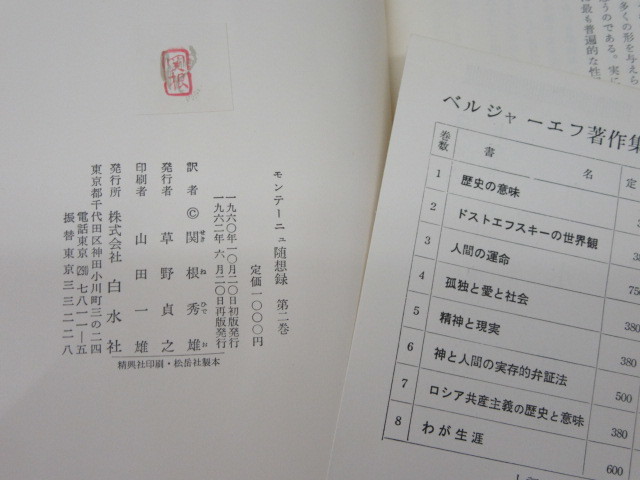 関根
モンテーニュ随想録 第二巻
定価一〇〇〇円
一九六〇年一〇月二〇日初版発行
一九六二年六月二〇日再版発行
訳者 © 関根秀雄
せきねひでお
発行者 草野貞之
印刷者 山田一雄
発行所 株式会社 白水社
東京都千代田区神田小川町三の二四
電話東京(291)七八一一―五
振替東京三三二二八
精興社印刷・松岳社製本
多くの形を与えら
うのである。実に
最も普遍的な性
ベルジャーエフ著作集
巻数 書名 定
1 歴史の意味
2 ドストエフスキーの世界観
3 人間の運命
4 孤独と愛と社会 750
5 精神と現実 380
6 神と人間の実存的弁証法 380
7 ロシア共産主義の歴史と意味 500
8 わが生涯 380
600